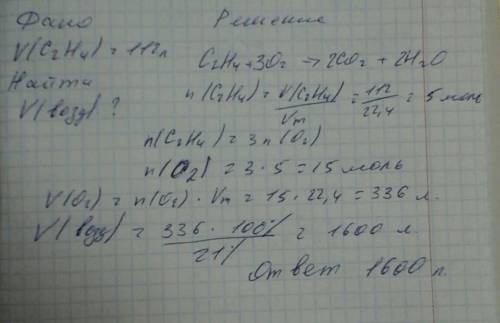 Дано Решение
V(C₂H₄) = 112 л
Найти
V(возд) ?
C₂H₄ + 3O₂ → 2CO₂ + 2H₂O
n(C₂H₄) = V(C₂H₄)/Vm = 112/22,4 = 5 моль
n(C₂H₄) = 3n(O₂)
n(O₂) = 3 · 5 = 15 моль
V(O₂) = n(O₂) · Vm = 15 · 22,4 = 336 л.
V(возд) = 336 · 100%/21% = 1600 л.
Ответ 1600 л.